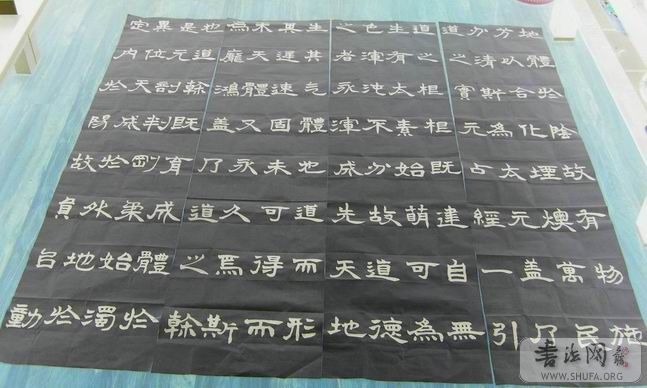 地體於陰故有物施
方以合化堙燠萬民
分清斯為太元蓋乃
道之實元占經一引
道之根根既建自無
生有太素始萌可為
色渾沌不分故道德
之者永渾成先天地
生其气體也道而形
其遲速固未可得而
不天體又永久焉斯
為龐鴻蓋乃道之幹
也道幹既育成體於
是元剖判剛柔始濁
異位天成於外地於
定内於陽故員名動
書法网
WWW.SHUFA.ORG